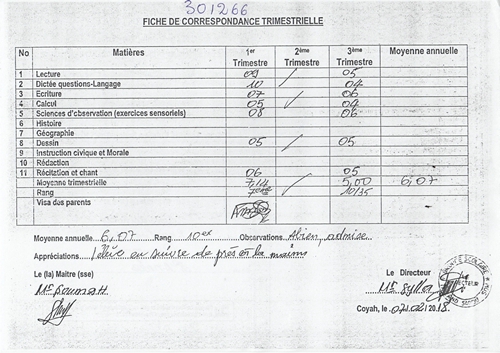 301266
FICHE DE CORRESPONDANCE TRIMESTRIELLE
No Matières 1er Trimestre 2ème Trimestre 3ème Trimestre Moyenne annuelle
1 Lecture 09 05
2 Dictée questions-Langage 10 04
3 Ecriture 07 06
4 Calcul 05 04
5 Sciences d'observation (exercices sensoriels) 08 06
6 Histoire
7 Géographie
8 Dessin 05 05
9 Instruction civique et Morale
10 Rédaction
11 Récitation et chant 06 05
Moyenne trimestrielle 7,14 5,00 6,07
Rang 7ème 10/35
Visa des parents
Moyenne annuelle 6,07 Rang 10ex Observations admise
Appréciations à suivre de près
Le (la) Maitre (sse) Le Directeur
Coyah, le 2018